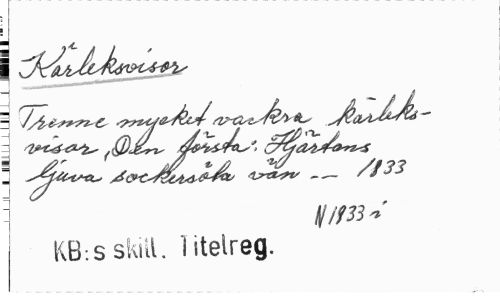 Kärleksvisor
Trenne mycket vackra kärleks-
visor, Den första: Hjärtans
ljuva sockersöta vän -- 1833
N 1833 i
KB:s skill. Titelreg.